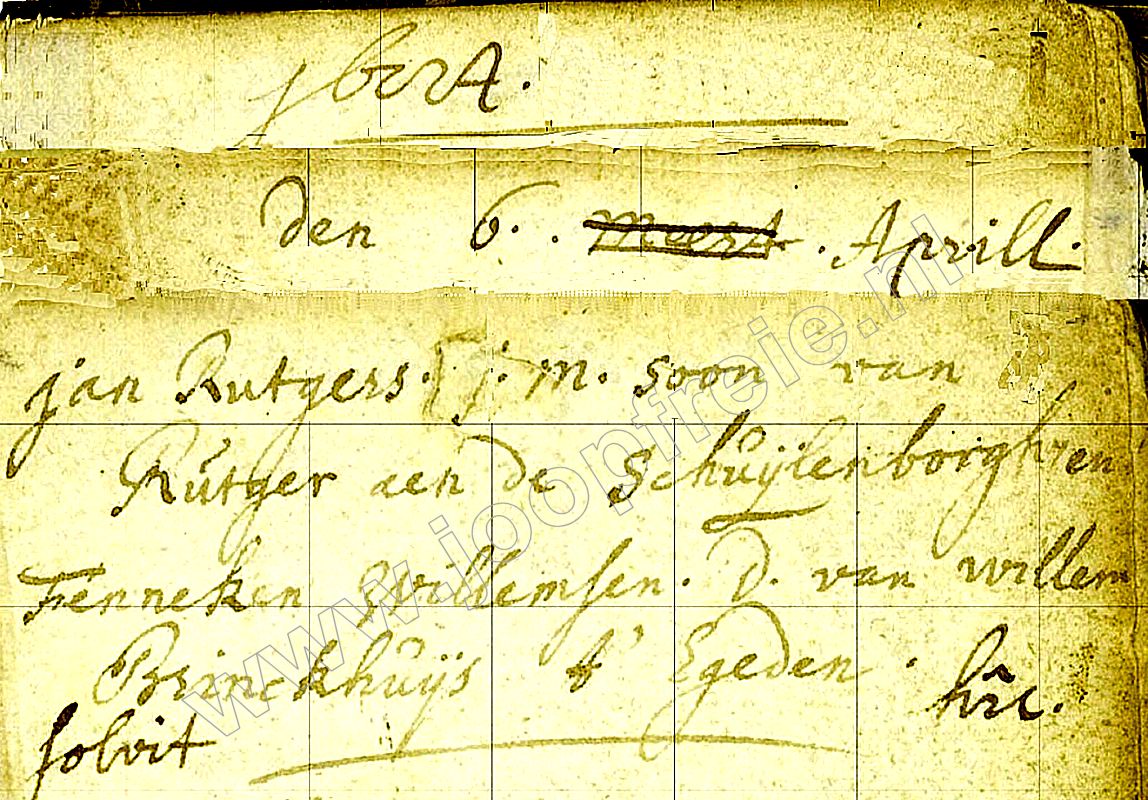 den 6. . Meert . Aprill.
jan Rutgers. j. m. soon van
Rutger aen de Schuÿlenborgh en
Fenneken Willemsen. D. van willem
Brinckhuÿs t' Egeden. hîc.
solvit
www.joopfreie.nl